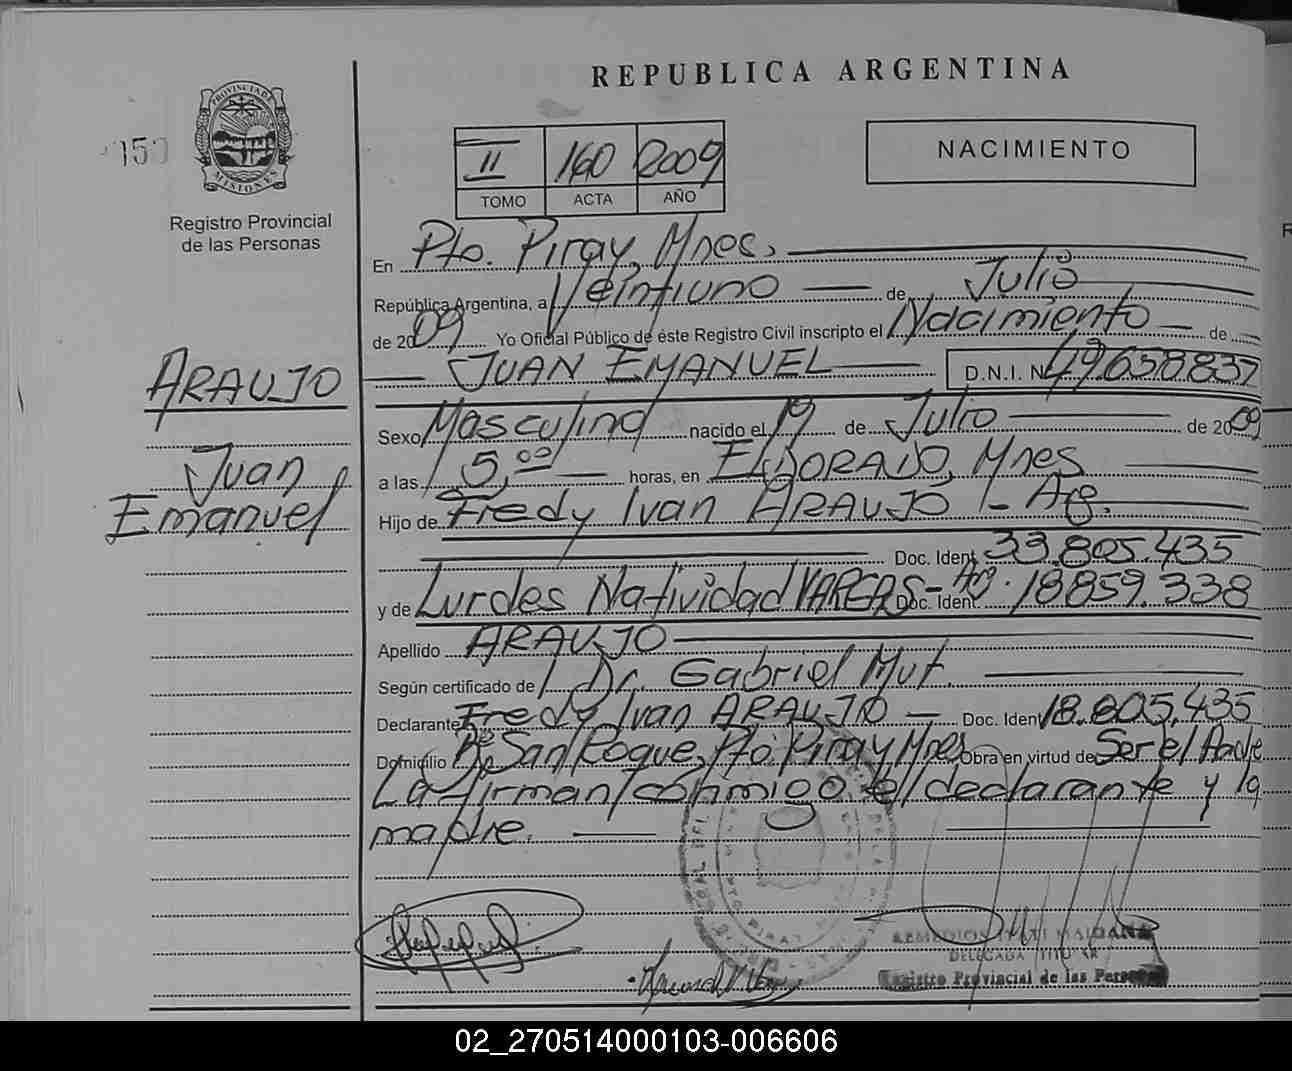 REPUBLICA ARGENTINA
PROVINCIA DE
MISIONES
Registro Provincial
de las Personas
II 160 2009
TOMO ACTA AÑO
NACIMIENTO
En Pto. Piray, Mnes,
República Argentina, a Veintiuno de Julio
de 2009 Yo Oficial Público de éste Registro Civil inscripto el Nacimiento de
JUAN EMANUEL D.N.I. Nº 49.658.837
ARAUJO
Juan
Emanuel
Sexo Masculino nacido el 19 de Julio de 2009
a las 15,00 horas, en ELDORADO, Mnes
Hijo de Fredy Ivan ARAUJO - Arg.
Doc. Ident. 33.805.435
y de Lurdes Natividad VARGAS - Ag. Doc. Ident. 18859.338
Apellido ARAUJO
Según certificado de Dr. Gabriel Mut.
Declarante Fredy Ivan ARAUJO Doc. Ident 18.805.435
Domicilio Bº San Roque, Pto. Piray Mnes Obra en virtud de Ser el Padre
La firman conmigo el declarante y la
madre.
REMEDIOS ITATI MAIDANA
DELEGADA TITULAR
Registro Provincial de las Personas
02_270514000103-006606